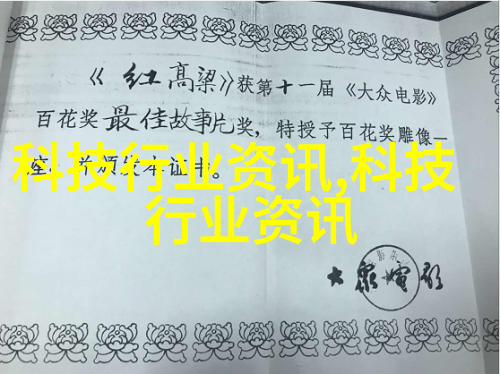 《红高粱》获第十一届《大众电影》
百花奖最佳故事片奖，特授予百花奖雕像一
座，并颁发本证书。
科技行业资讯,科技
行业资讯
大众电影